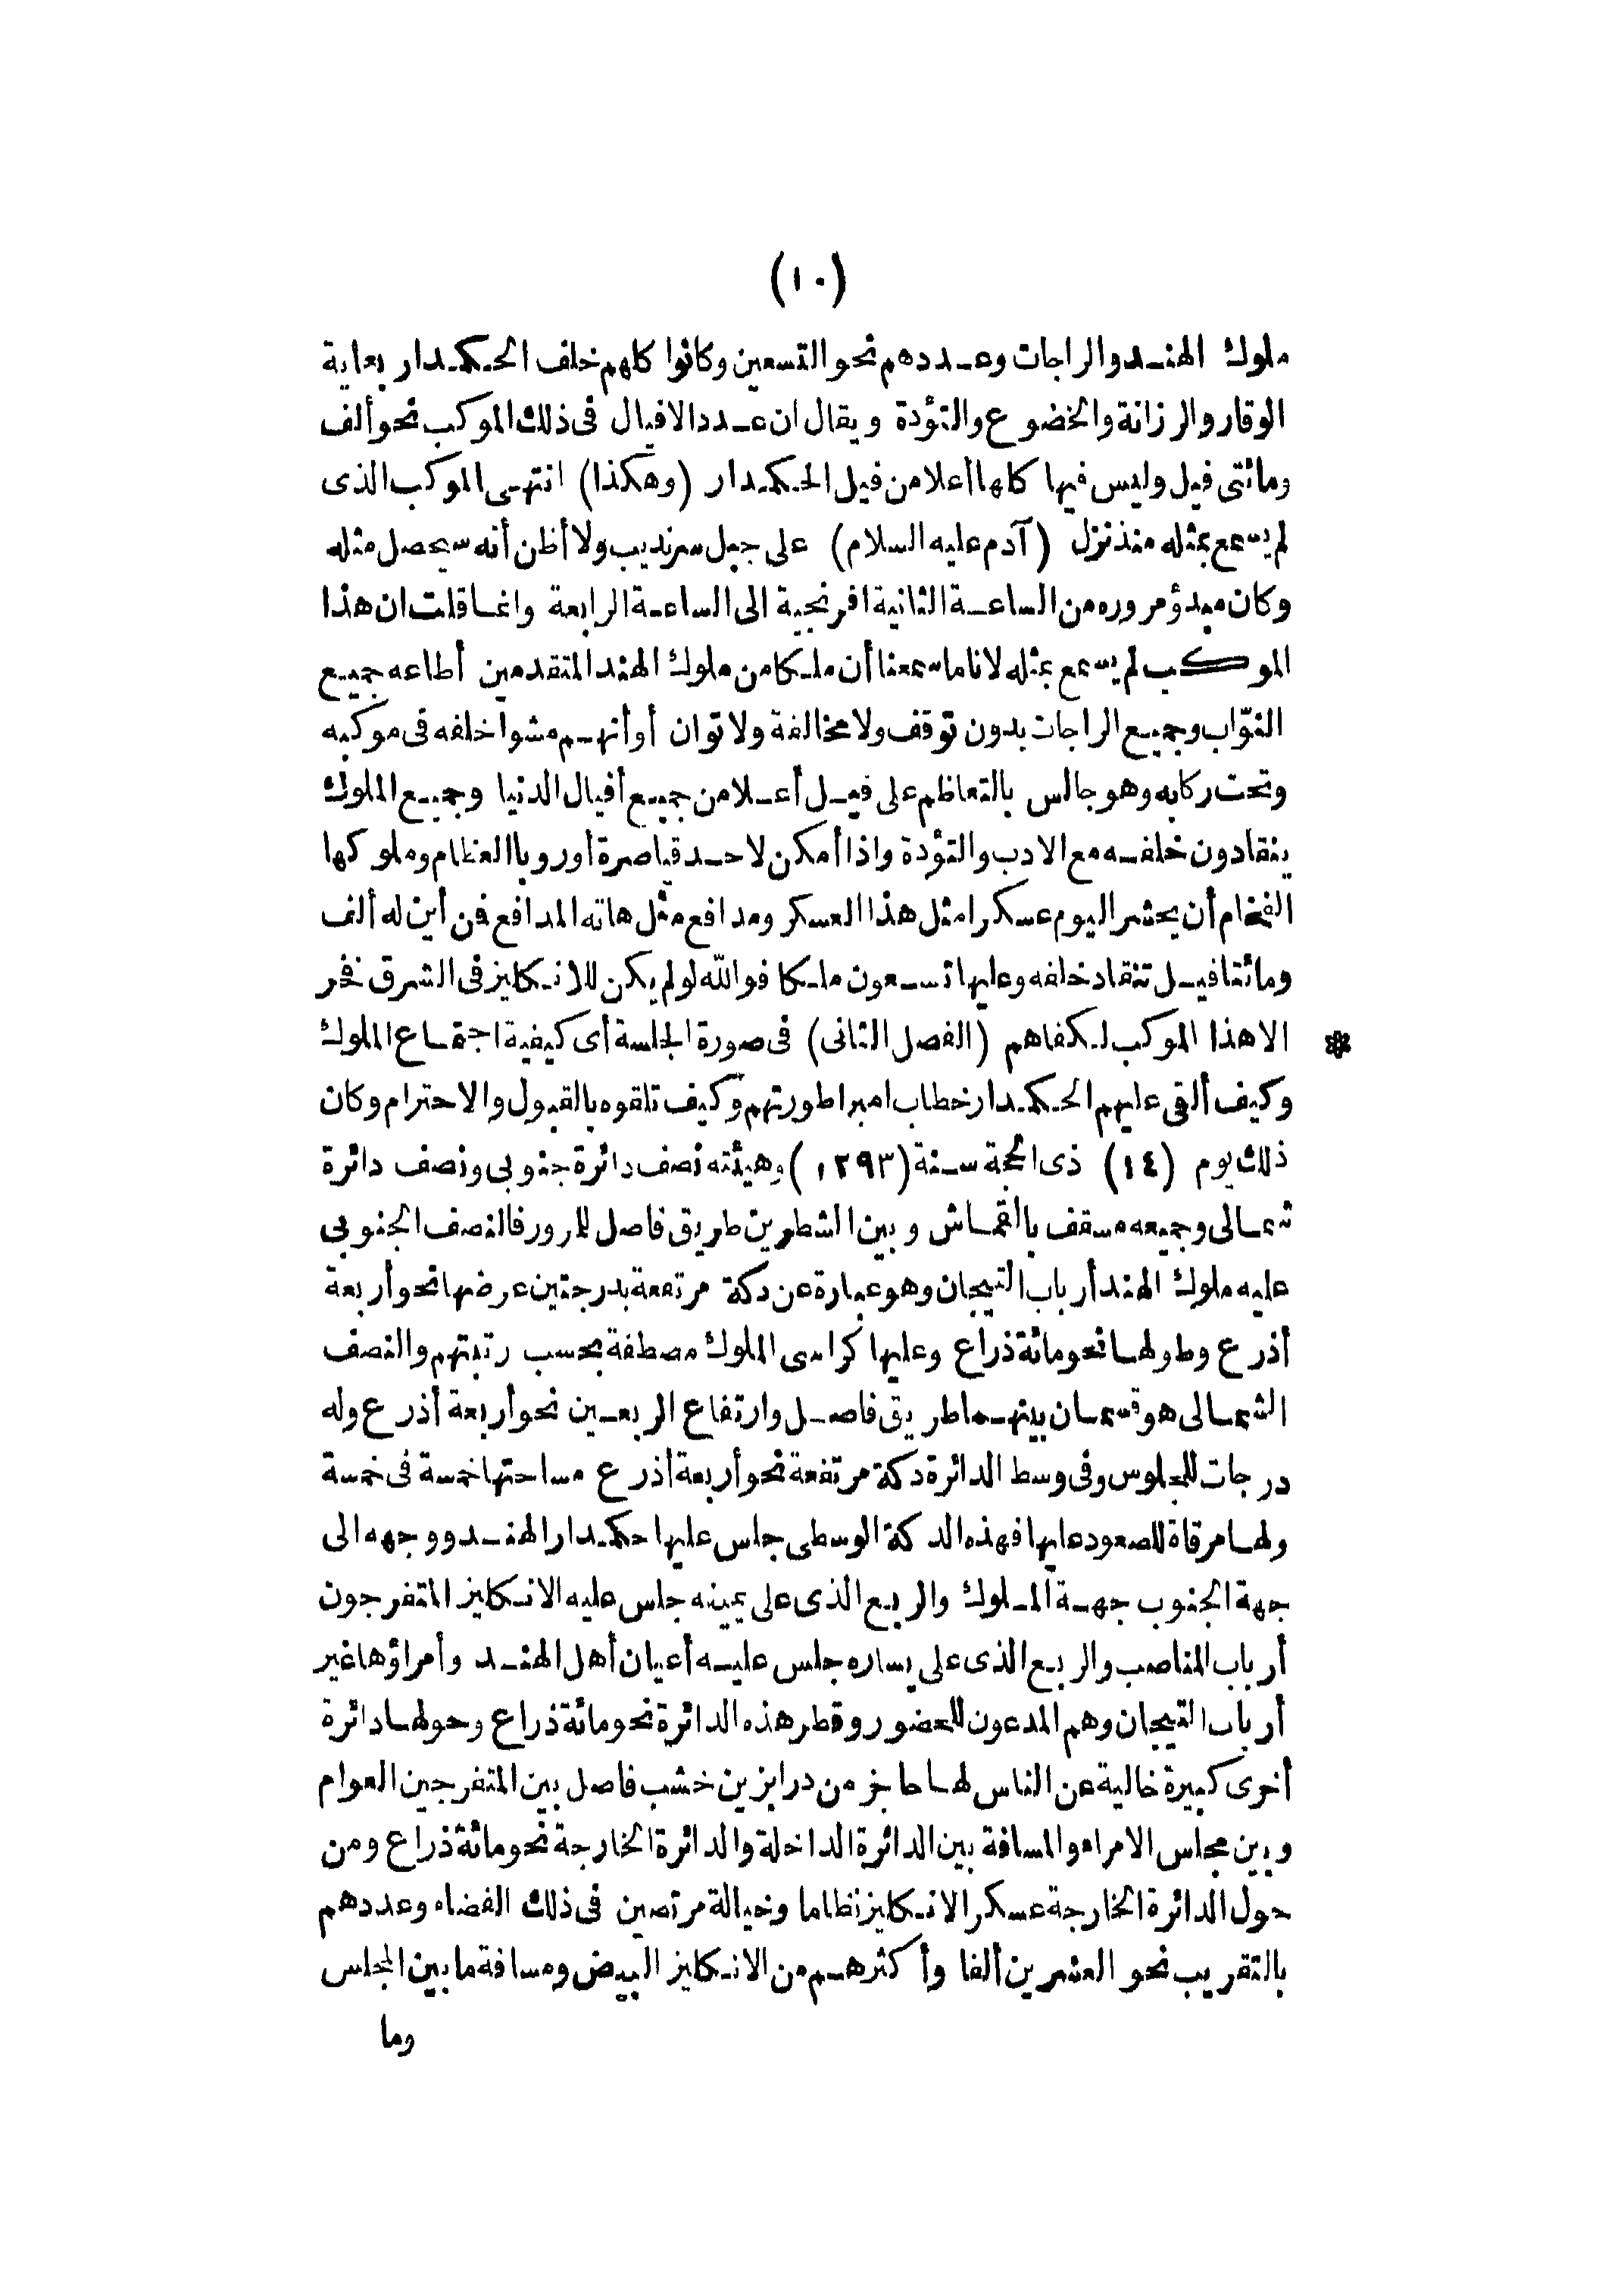 (١٠)
ملوك الهند والراجات وعددهم نحو التسعين وكانوا كلهم خلف الحكمدار بغاية
الوقار والرزانة والخضوع والتؤدة ويقال ان عدد الافيال فى ذلك الموكب نحو ألف
ومائتى فيل وليس فيها كلها أعلا من فيل الحكمدار (وهكذا) انتهى الموكب الذى
لم يسمع بمثله منذ نزل (آدم عليه السلام) على جبل سرنديب ولا أظن أنه سيحصل مثله
وكان مبدؤ مروره من الساعة الثانية افرنجية الى الساعة الرابعة وانما قلت ان هذا
الموكب لم يسمع بمثله لانا ما سمعنا أن ملكا من ملوك الهند المتقدمين أطاعه جميع
النوّاب وجميع الراجات بدون توقف ولا مخالفة ولا توان أو أنهم مشوا خلفه فى موكبه
وتحت ركابه وهو جالس بالتعاظم على فيل أعلا من جميع أفيال الدنيا وجميع الملوك
ينقادون خلفه مع الادب والتؤدة واذا أمكن لاحد قياصرة أوروبا العظام وملوكها
الفخام أن يحشر اليوم عسكرا مثل هذا العسكر ومدافع مثل هاته المدافع فمن أين له ألف
ومائتا فيل تنقاد خلفه وعليها تسعون ملكا فوالله لو لم يكن للانكليز فى الشرق فخر
* الا هذا الموكب لكفاهم (الفصل الثانى) فى صورة الجلسة أى كيفية اجتماع الملوك
وكيف ألقى عليهم الحكمدار خطاب امبراطورتهم وكيف تلقوه بالقبول والاحترام وكان
ذلك يوم (١٤) ذى الحجة سنة (١٢٩٣) وهيئته نصف دائرة جنوبى ونصف دائرة
شمالى وجميعه مسقف بالقماش وبين الشطرين طريق فاصل للمرور فالنصف الجنوبى
عليه ملوك الهند أرباب التيجان وهو عبارة عن دكة مرتفعة بدرجتين عرضها نحو أربعة
أذرع وطولها نحو مائة ذراع وعليها كراسى الملوك مصطفة بحسب رتبتهم والنصف
الشمالى هو قسمان بينهما طريق فاصل وارتفاع الربعين نحو أربعة أذرع وله
درجات للجلوس وفى وسط الدائرة دكة مرتفعة نحو أربعة أذرع مساحتها خمسة فى خمسة
ولها مرقاة للصعود عليها فهذه الدكة الوسطى جلس عليها حكمدار الهند ووجهه الى
جهة الجنوب جهة الملوك والربع الذى على يمينه جلس عليه الانكليز المتفرجون
أرباب المناصب والربع الذى على يساره جلس عليه أعيان أهل الهند وأمراؤها غير
أرباب التيجان وهم المدعون للحضور وقطر هذه الدائرة نحو مائة ذراع وحولها دائرة
أخرى كبيرة خالية عن الناس لها حاجز من درابزين خشب فاصل بين المتفرجين العوام
وبين مجلس الامراء والمسافة بين الدائرة الداخلة والدائرة الخارجة نحو مائة ذراع ومن
حول الدائرة الخارجة عسكر الانكليز نظاما وخيالة مرتصين فى ذلك الفضاء وعددهم
بالتقريب نحو العشرين ألفا وأكثرهم من الانكليز البيض ومسافة ما بين المجلس
وما